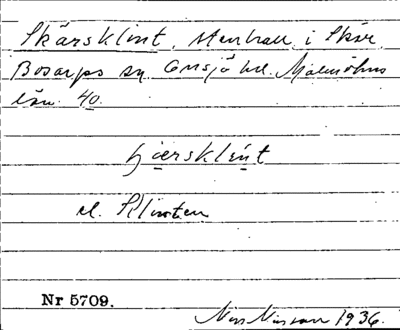 Skärsklint, stenhall i Skär
Bosarps sn. Onsjö hd. Malmöhus
län. 40.
hjærsklint
el. Klinten
Nr 5709.
Nils Nilsson 1936.